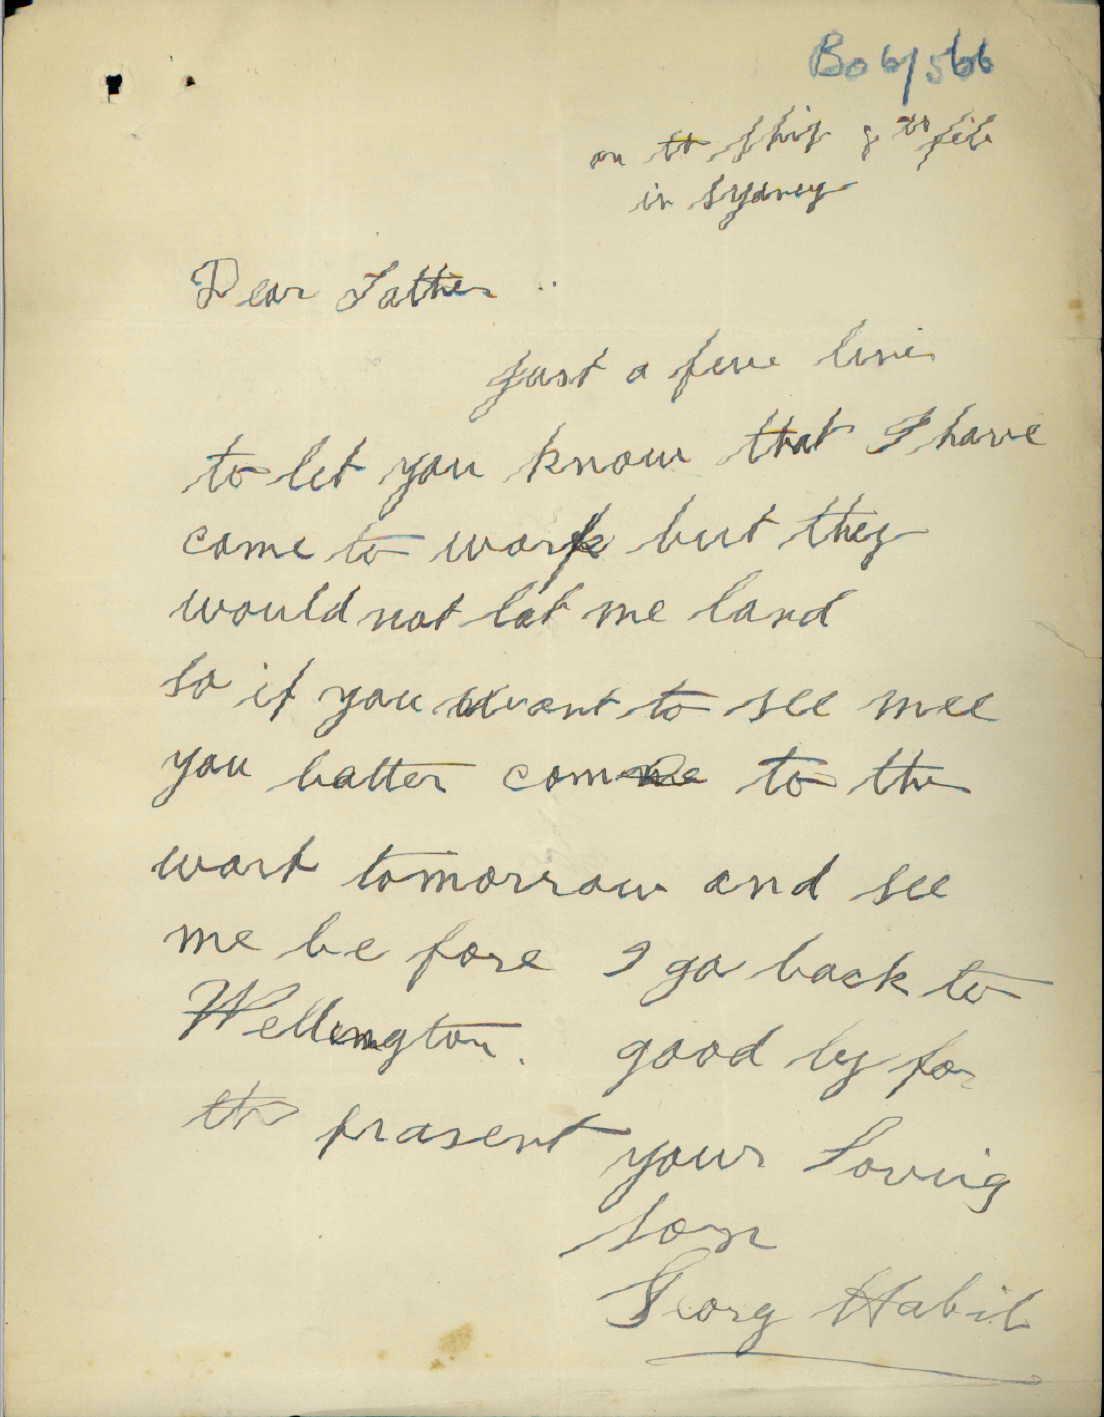 Bo 6/566
on the ship 8 th feb
in Sydney
Dear Father ..
Just a few lines
to let you know that I have
come to work but they
would not let me land
so if you want to see mee
you batter come to the
warf tomorrow and see
me be fore I go back to
Wellington. good by for
the prasent your Loving
son
Georg Habib